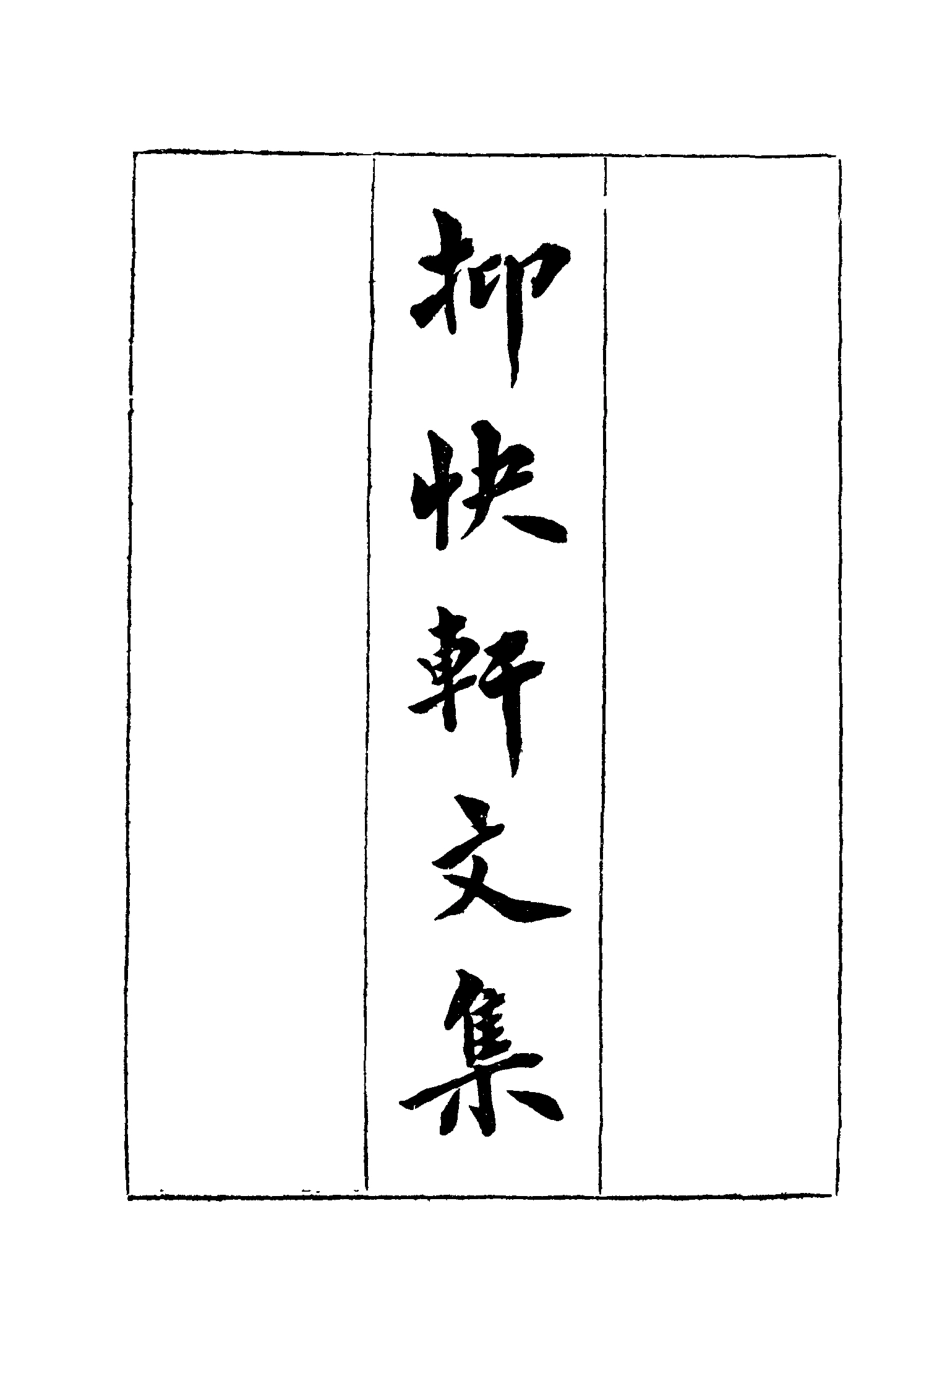 抑快軒文集